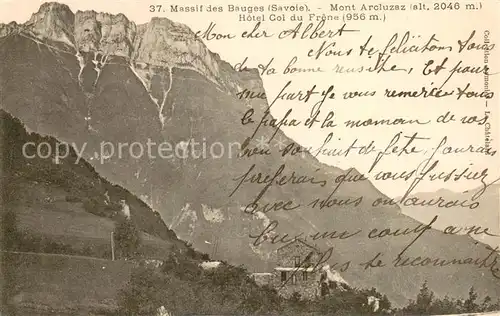 37. Massif des Bauges (Savoie). - Mont Arcluzaz (alt. 2046 m.)
Hôtel Col du Frêne (956 m.)
Mon cher Albert
Nous te félicitons tous
de ta bonne réussite, Et pour
ma part je vous remercie tous
le papa et la maman de vos
bon souhait de fête, j'aurais
préférais que vous fussiez
avec nous on aurais
bu un coup a ne
plus se reconnaître
Collection
Chambéry
delcampe.net